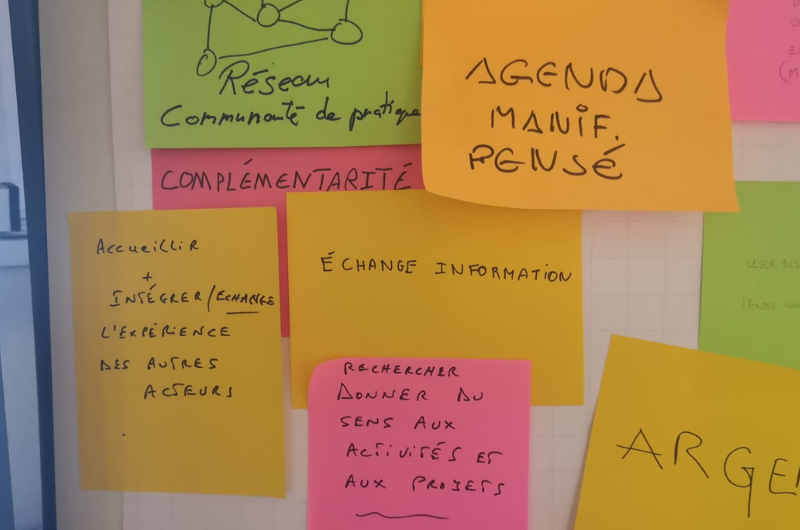 Réseau
Communauté de pratique
AGENDA
MANIF.
PENSÉ
COMPLÉMENTARITÉ
Accueillir
+
INTÉGRER/ÉCHANGE
L'EXPÉRIENCE
DES AUTRES
ACTEURS
ÉCHANGE INFORMATION
RECHERCHER
DONNER DU
SENS AUX
ACTIVITÉS ET
AUX PROJETS
LEVER DES
(FONDS
ARGE